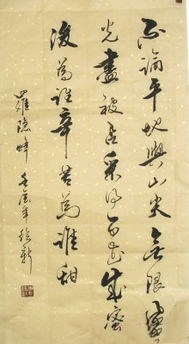 不論平地與山尖無限風
光盡被占采得百花成蜜
後為誰辛苦為誰甜
羅隱蜂 年 新